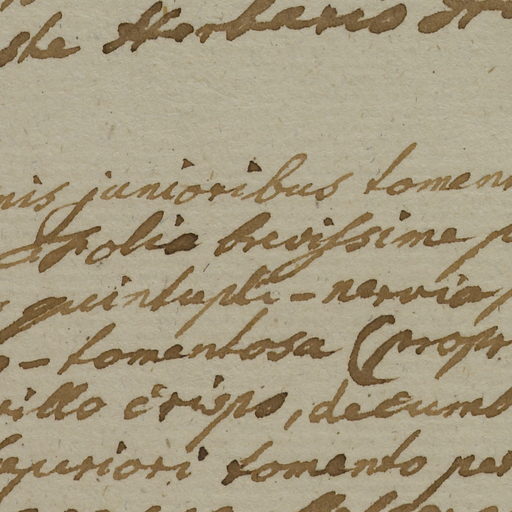 Herbario
junioribus tomen
Folia brevissime p
quintupli-nervia
-tomentosa (propr
villo crispo, decumb
tomento per